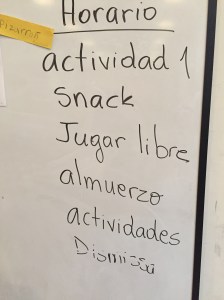 Horario
Pizarrón
actividad 1
Snack
Jugar libre
almuerzo
actividades